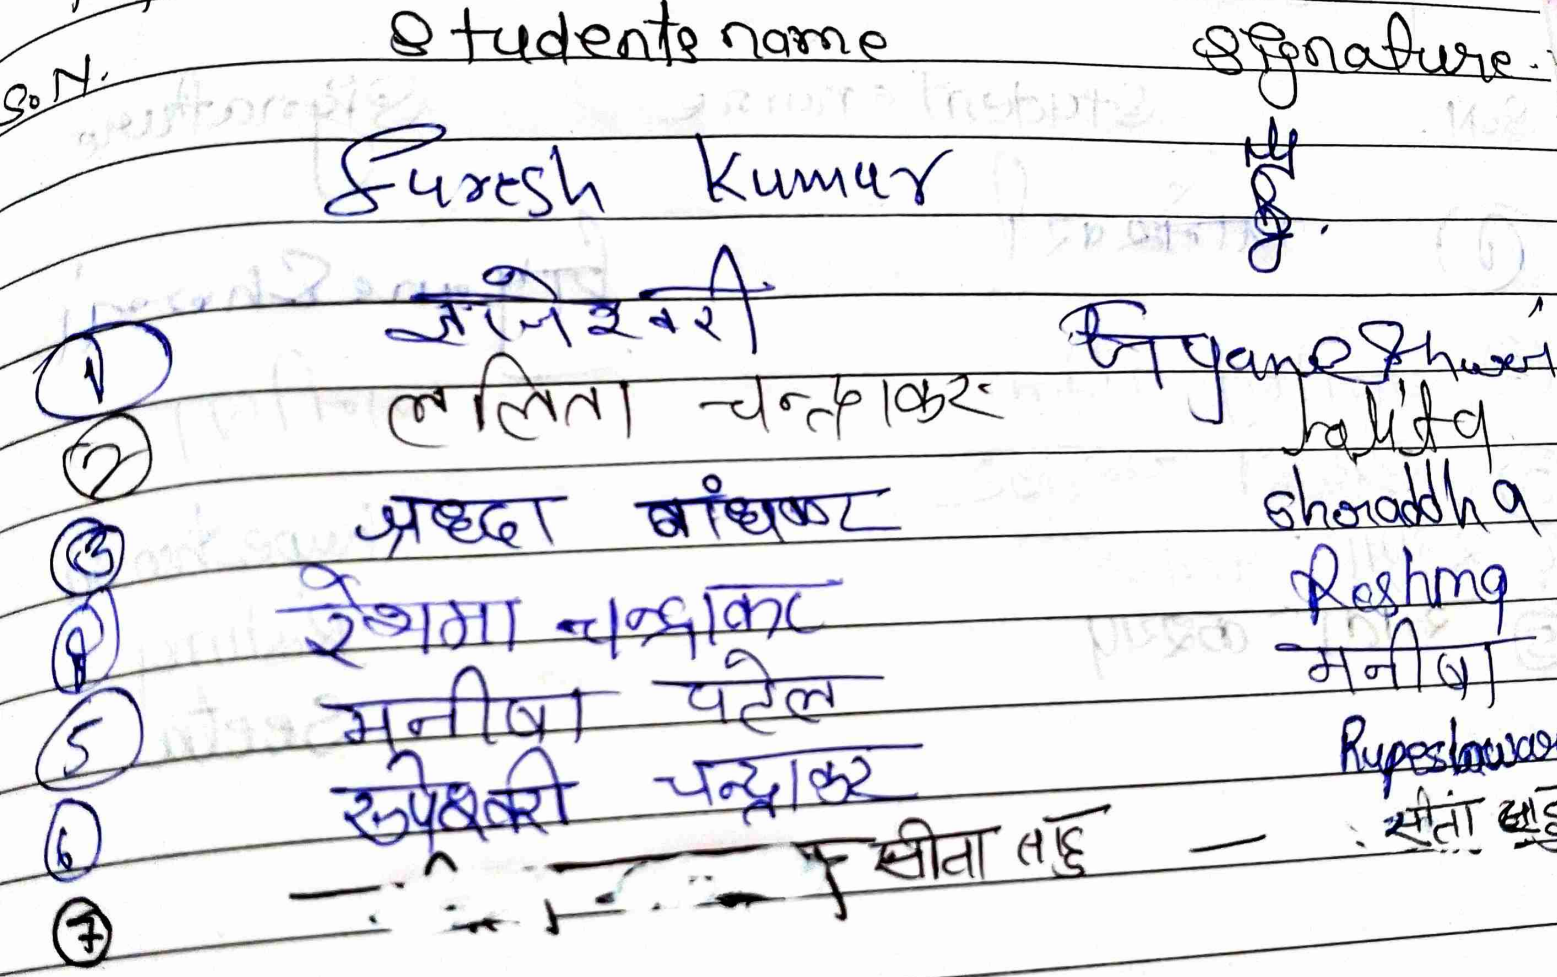 S.N. Students name Signature.
Suresh Kumar
① Gyaneshwari
② ललिता चन्द्राकर Lalita
③ श्रध्दा बांधेकर Shraddha
④ रेशमा चन्द्राकर Reshma
⑤ मनीषा पटेल मनीषा
⑥ रूपेश्वरी चन्द्राकर Rupeshwar
⑦ सीता साहु — सीता साहु